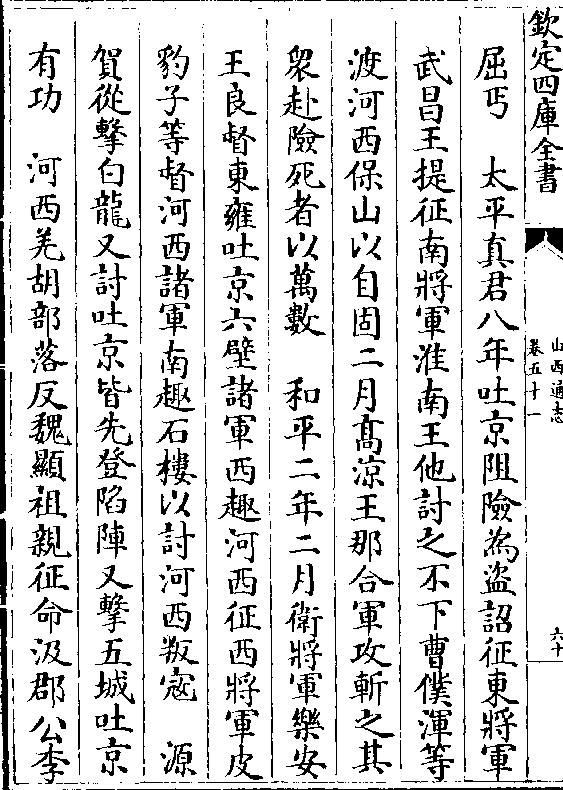 欽定四庫全書
山西通志
卷五十一
六十
屈丐　太平真君八年吐京阻險為盜詔征東將軍
武昌王提征南將軍淮南王他討之不下曹僕渾等
渡河西保山以自固二月高涼王那合軍攻斬之其
衆赴險死者以萬數　和平二年二月衛將軍樂安
王良督東雍吐京六壁諸軍西趣河西征西將軍皮
豹子等督河西諸軍南趣石樓以討河西叛寇　源
賀從擊白龍又討吐京皆先登陷陣又擊五城吐京
有功　河西羌胡部落反魏顯祖親征命汲郡公李